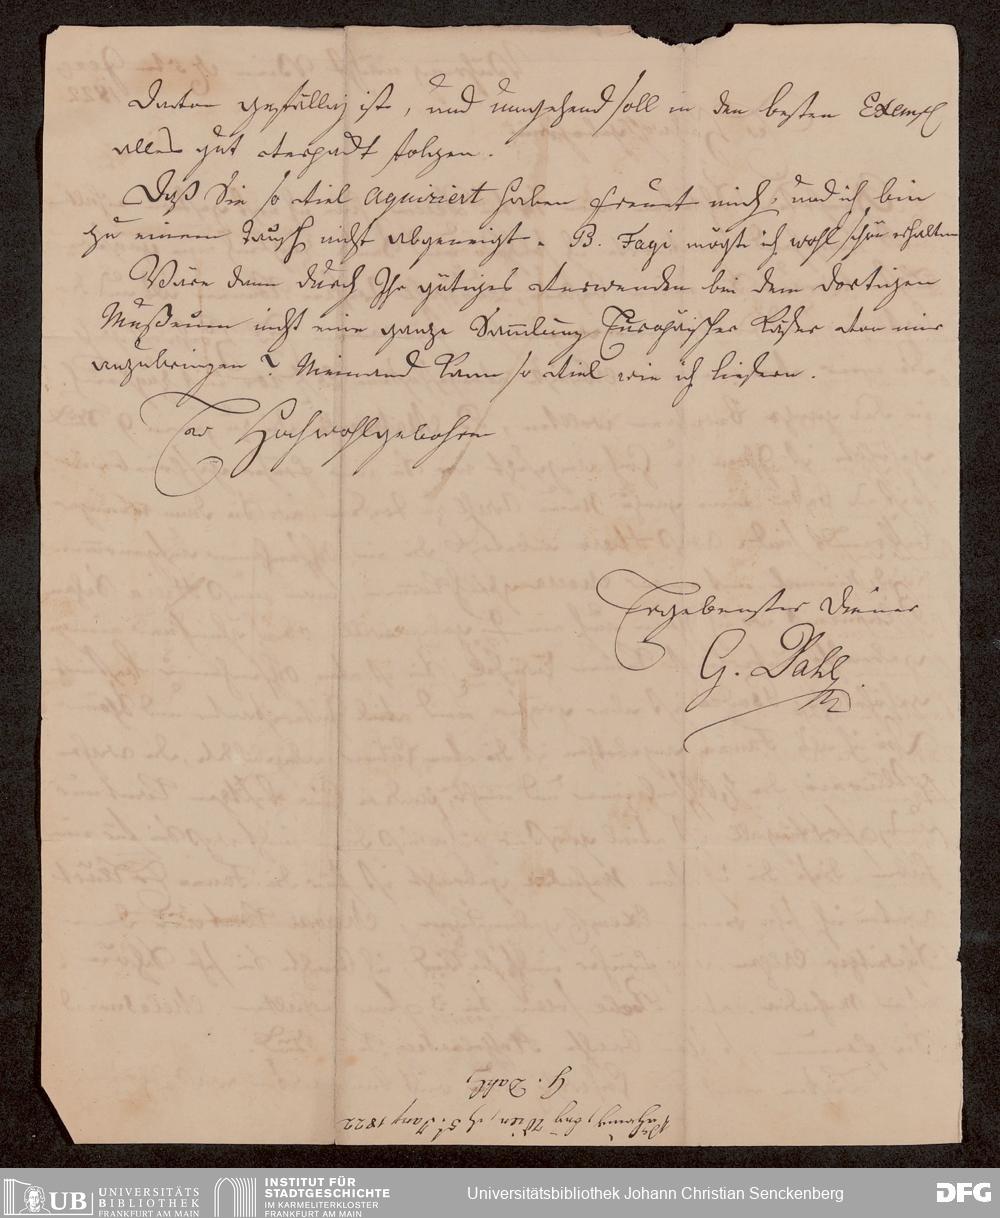 davon gefällig ist, und umgehend soll in den besten Exempl
alles gut verpackt folgen.
Daß Sie so viel aquiriert haben freuet mich, und ich bin
zu einem Tausch nicht abgeneigt. B. Fagi mögte ich wohl schön erhalten
Wäre denn durch Ihr gütiges Verwenden bei dem dortigen
Mußeum nicht eine ganze Sammlung Europäischer Käfer von mir
anzubringen? Niemand kann so viel wie ich liefern.
Ew Hochwohlgebohren
Ergebenster Diener
G. Dahl
G. Dahl,
Wien, d 5. Jany 1822
UB UNIVERSITÄTS
BIBLIOTHEK
FRANKFURT AM MAIN
INSTITUT FÜR
STADTGESCHICHTE
IM KARMELITERKLOSTER
FRANKFURT AM MAIN
Universitätsbibliothek Johann Christian Senckenberg
DFG